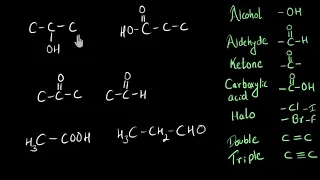 C – C – C
OH
O
HO – C – C – C
O
C – C – C
O
C – C – H
H₃C – COOH
H₃C – C – CH₂ – CHO
Alcohol – OH
O
Aldehyde – C – H
O
Ketone – C –
O
Carboxylic – C – OH
acid
Halo – Cl – I
– Br – F
Double C = C
Triple C ≡ C